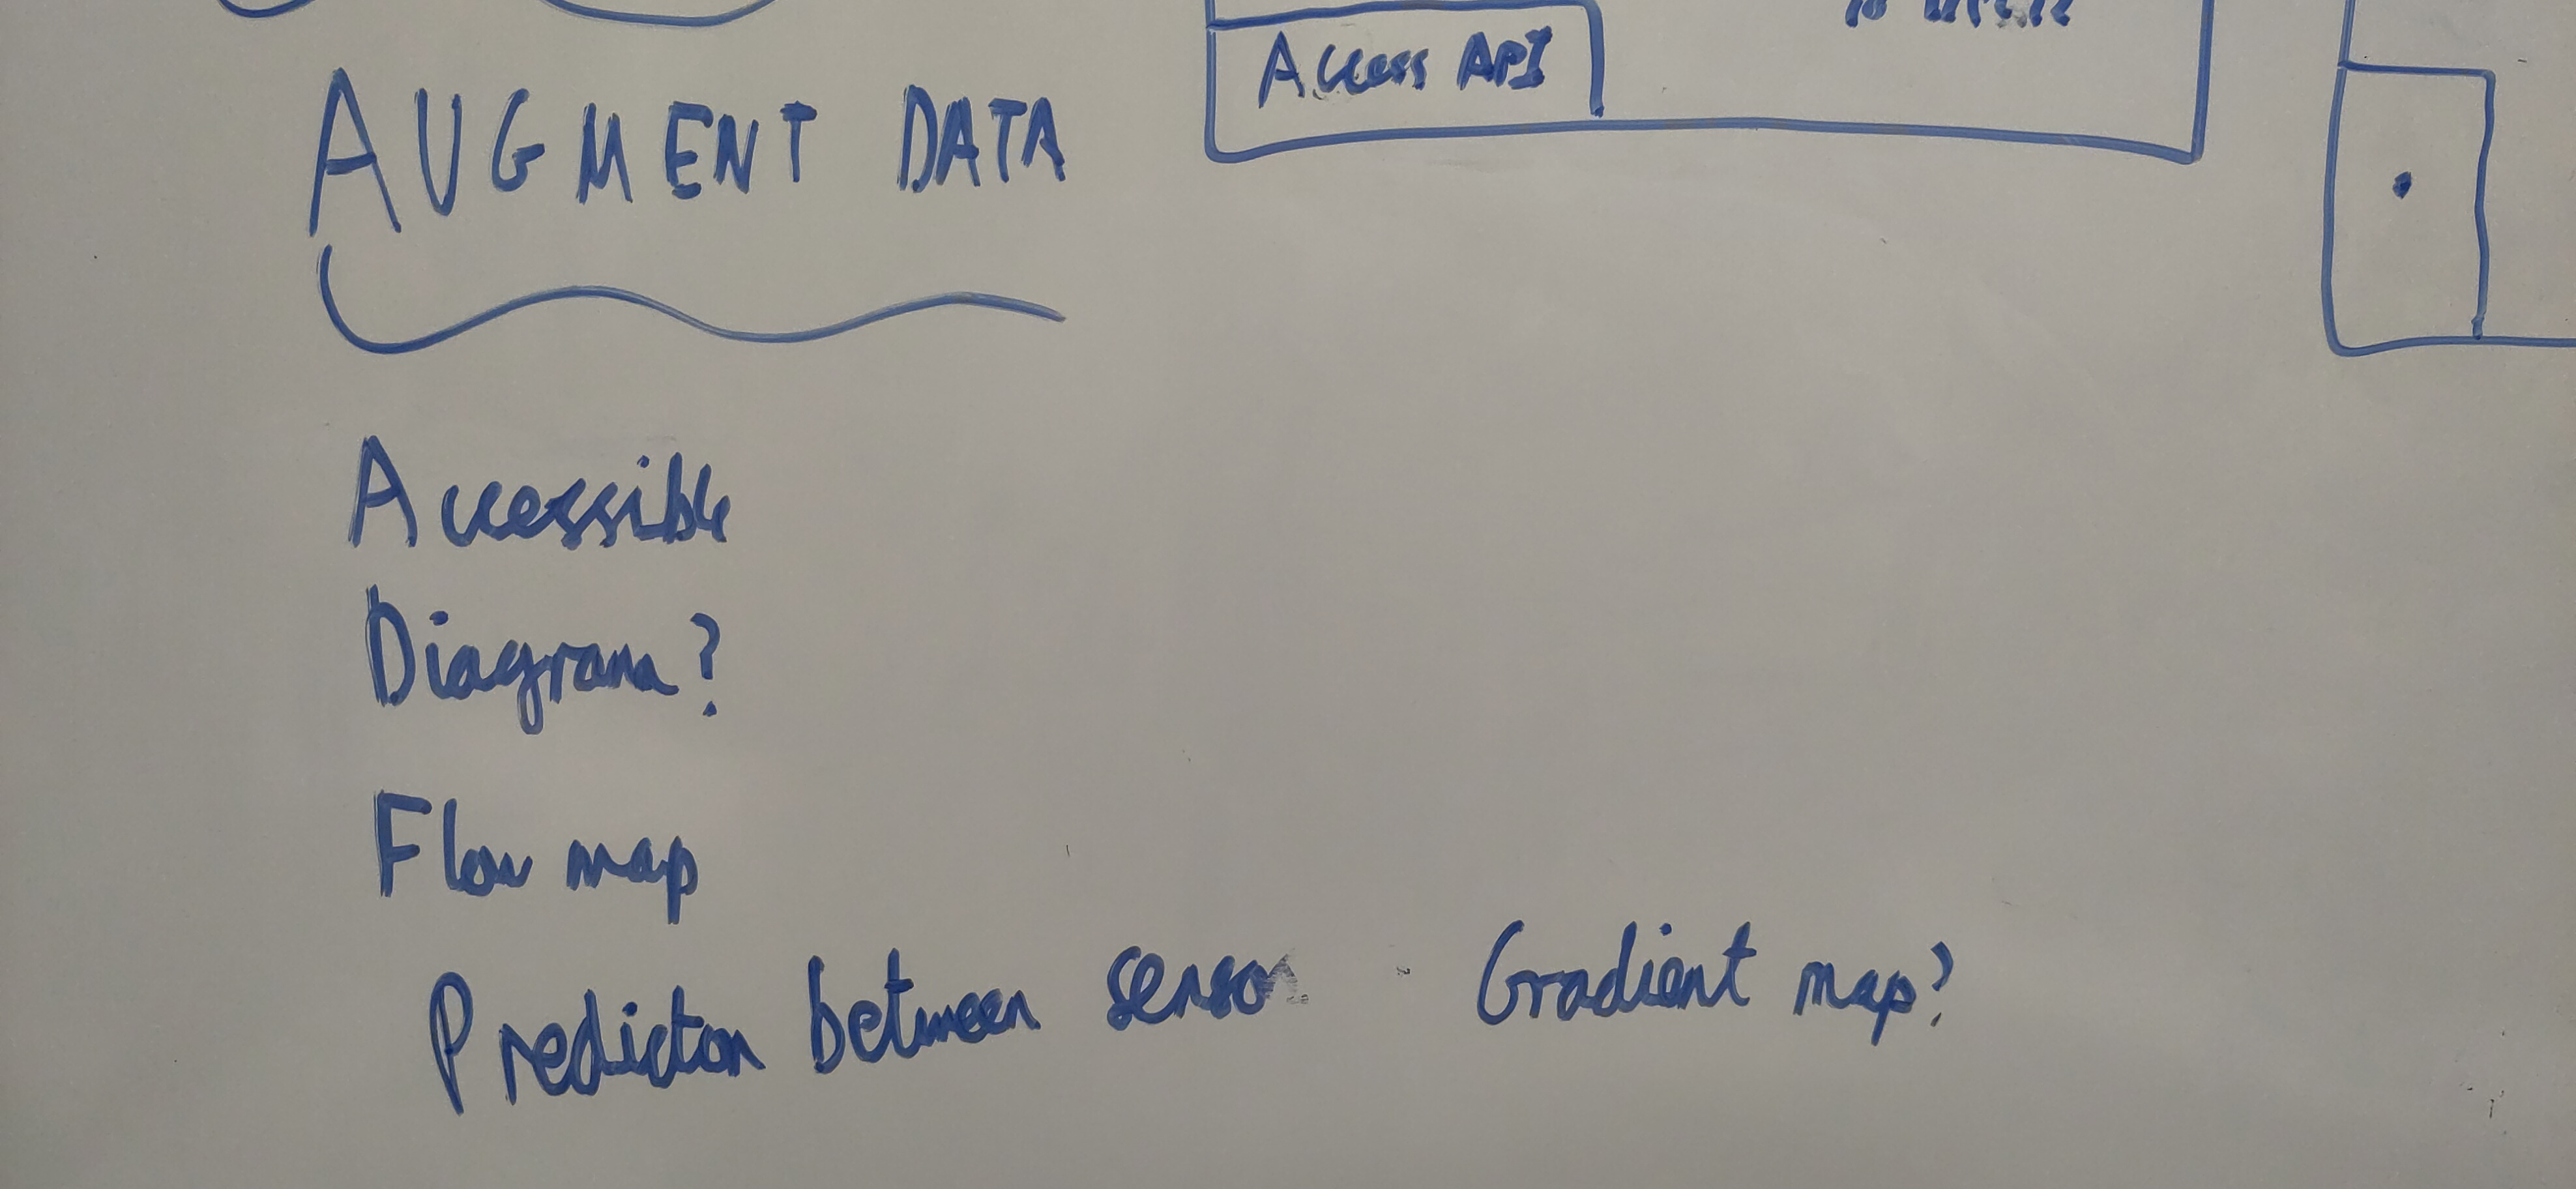 Access API
AUGMENT DATA
Accessible
Diagram?
Flow map
Prediction between sensor Gradient map?